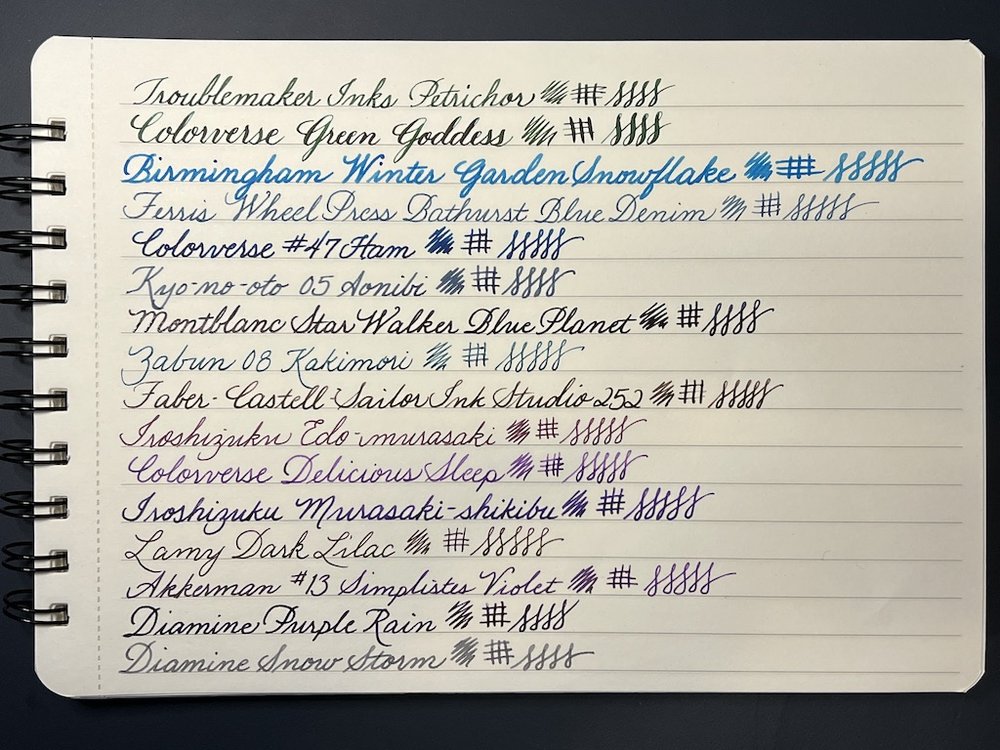 Troublemaker Inks Petrichor
Colorverse Green Goddess
Birmingham Winter Garden Snowflake
Ferris Wheel Press Bathurst Blue Denim
Colorverse #47 Ham
Kyo-no-oto 05 Aonibi
Montblanc StarWalker Blue Planet
Zabun 08 Kakimori
Faber-Castell Sailor Ink Studio 252
Iroshizuku Edo-murasaki
Colorverse Delicious Sleep
Iroshizuku Murasaki-shikibu
Lamy Dark Lilac
Akkerman #13 Simplistes Violet
Diamine Purple Rain
Diamine Snow Storm